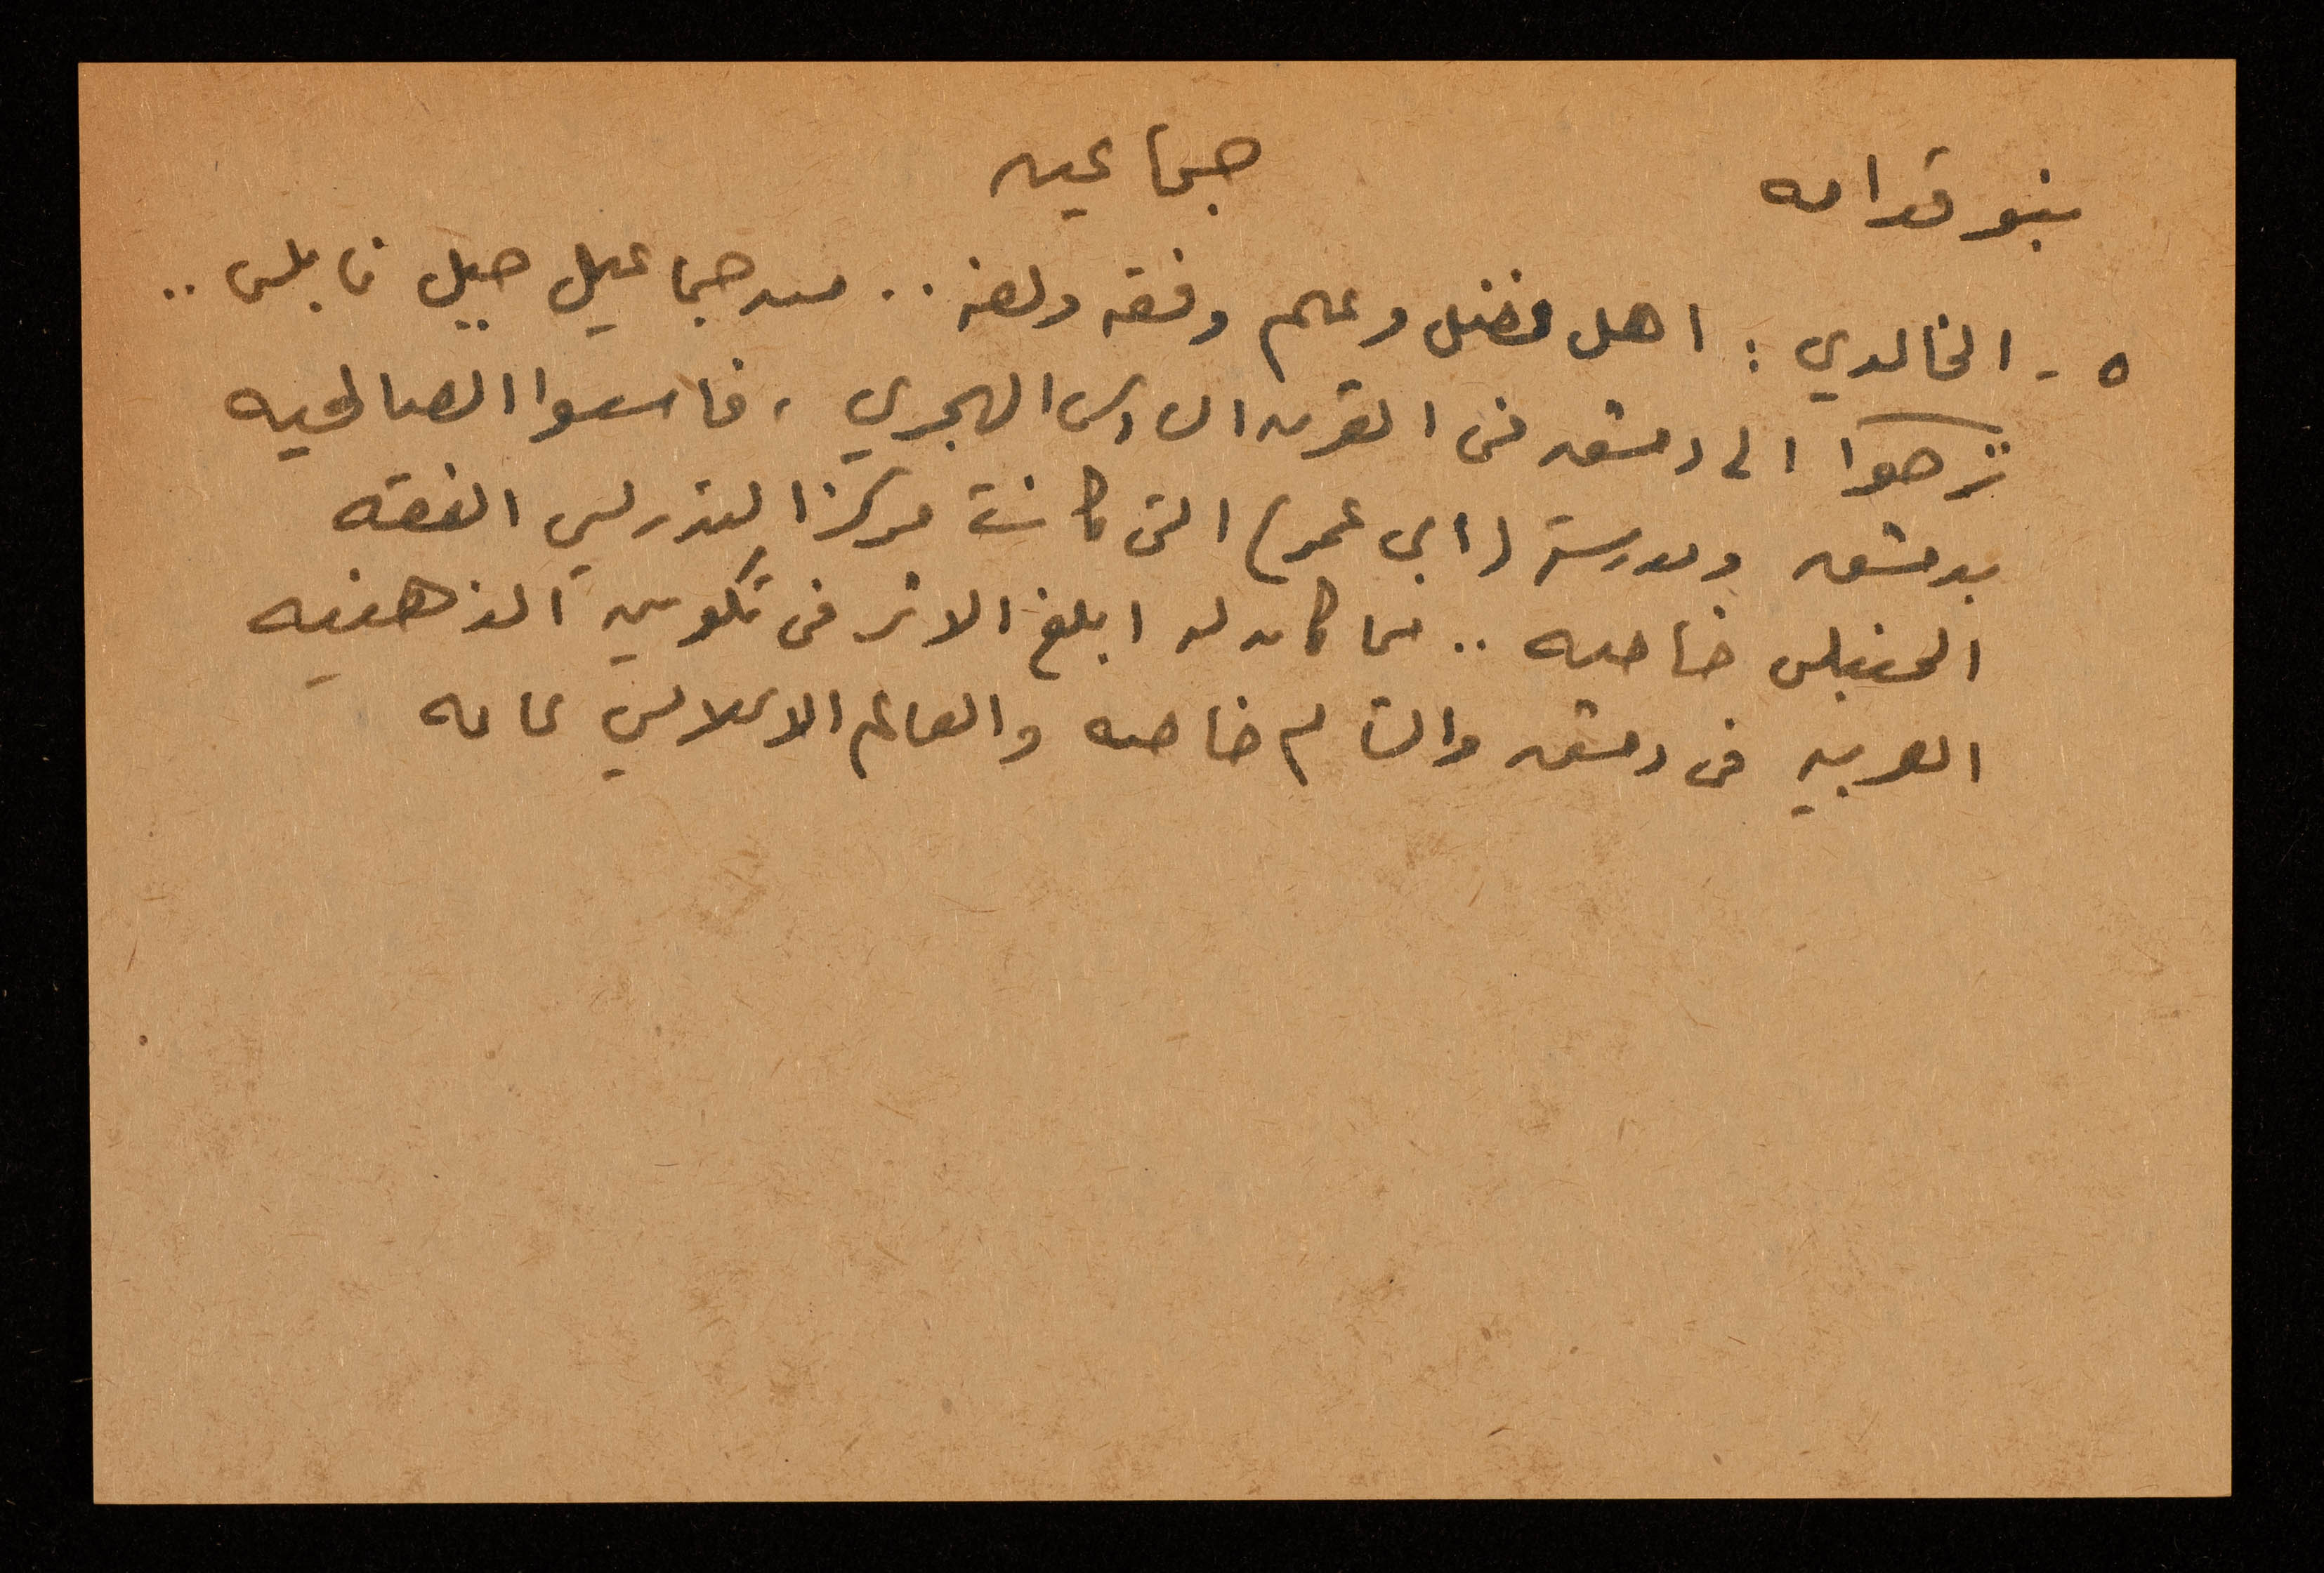 بنو قدامه
جماعيه
٥ - الخالدي : اهل فضل وعلم وفقه ولغه .. من جماعيل جبل نابلس ..
نزحوا الى دمشق في القرن السادس الهجري ، فاسسوا الصالحيه
بدمشق ومدرسة (ابي عمر) التي كانت مركز التدريس الفقه
الحنبلي خاصه .. مما كان له ابلغ الاثر في تكوين الذهنيه
العربيه في دمشق والشام خاصه والعالم الاسلامي عامه